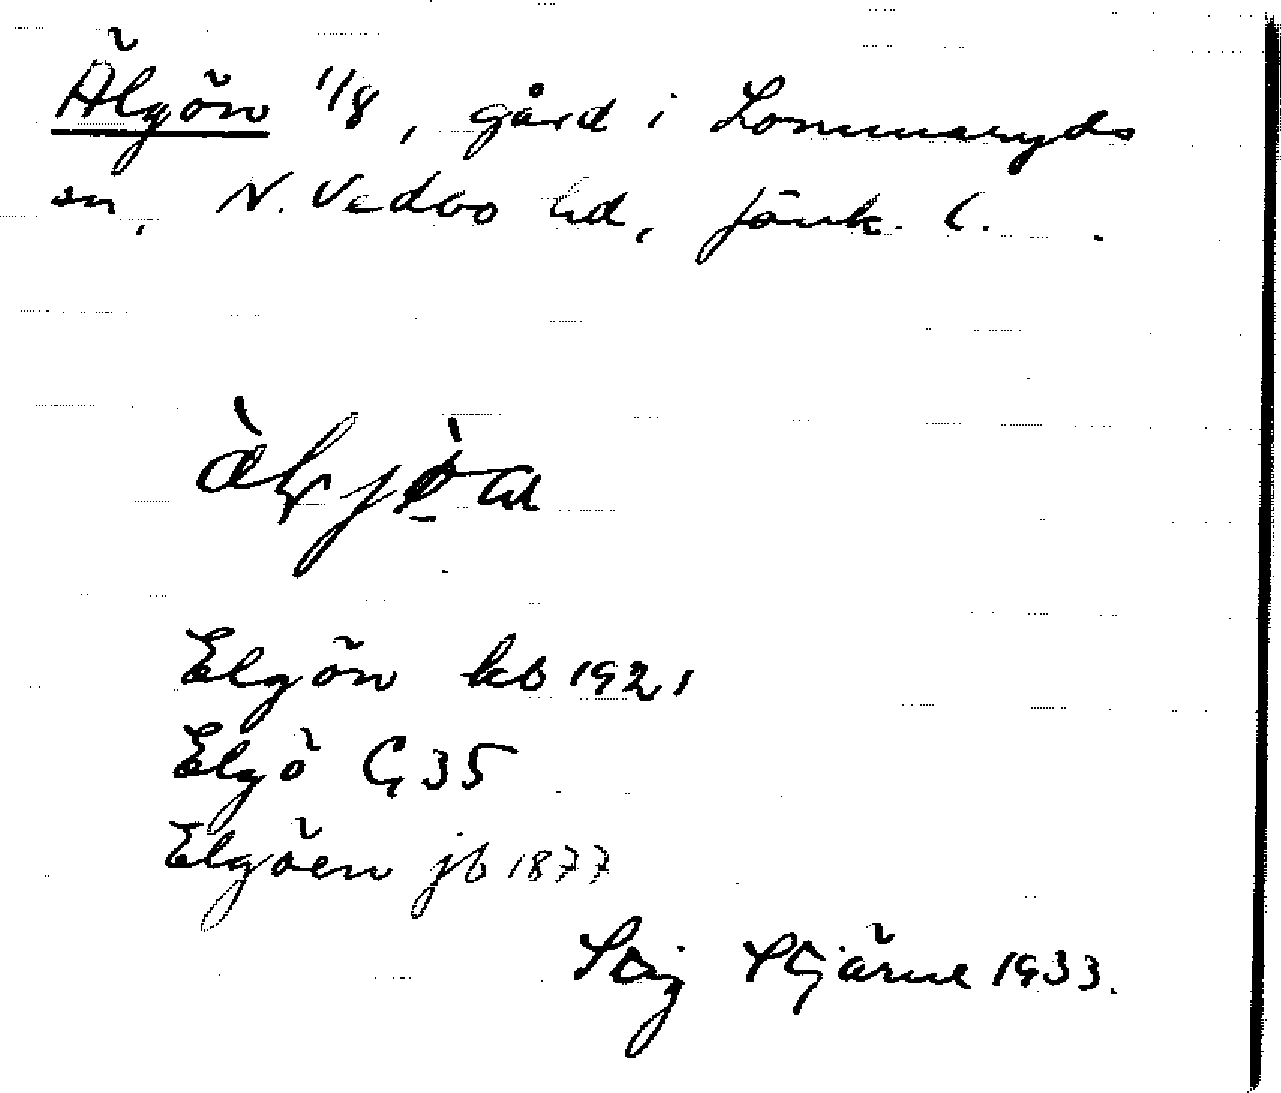 Älgön 1/8, gård i Lommaryds
sn, N. Vedbo hd, Jönk. l.
Elgön kb 1921
Elgö G 35
Elgöen jb 1877
Stig Stjärne 1933.